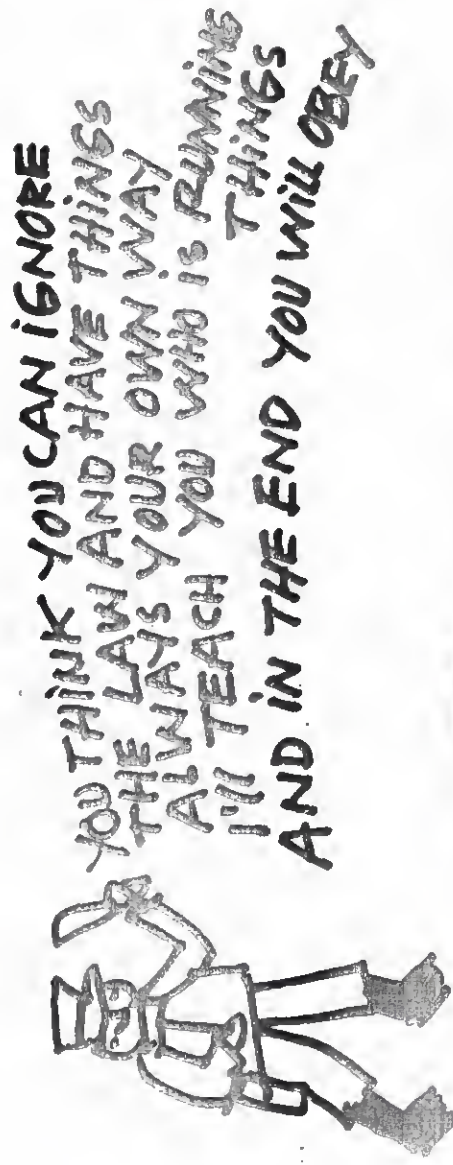 YOU THiNK YOU CAN iGNORE
THE LAW AND HAVE THiNGS
ALWAYS YOUR OWN WAY
I'll TEACH YOU WHO iS RUNNiNG
THiNGS
AND iN THE END YOU WiLL OBEY